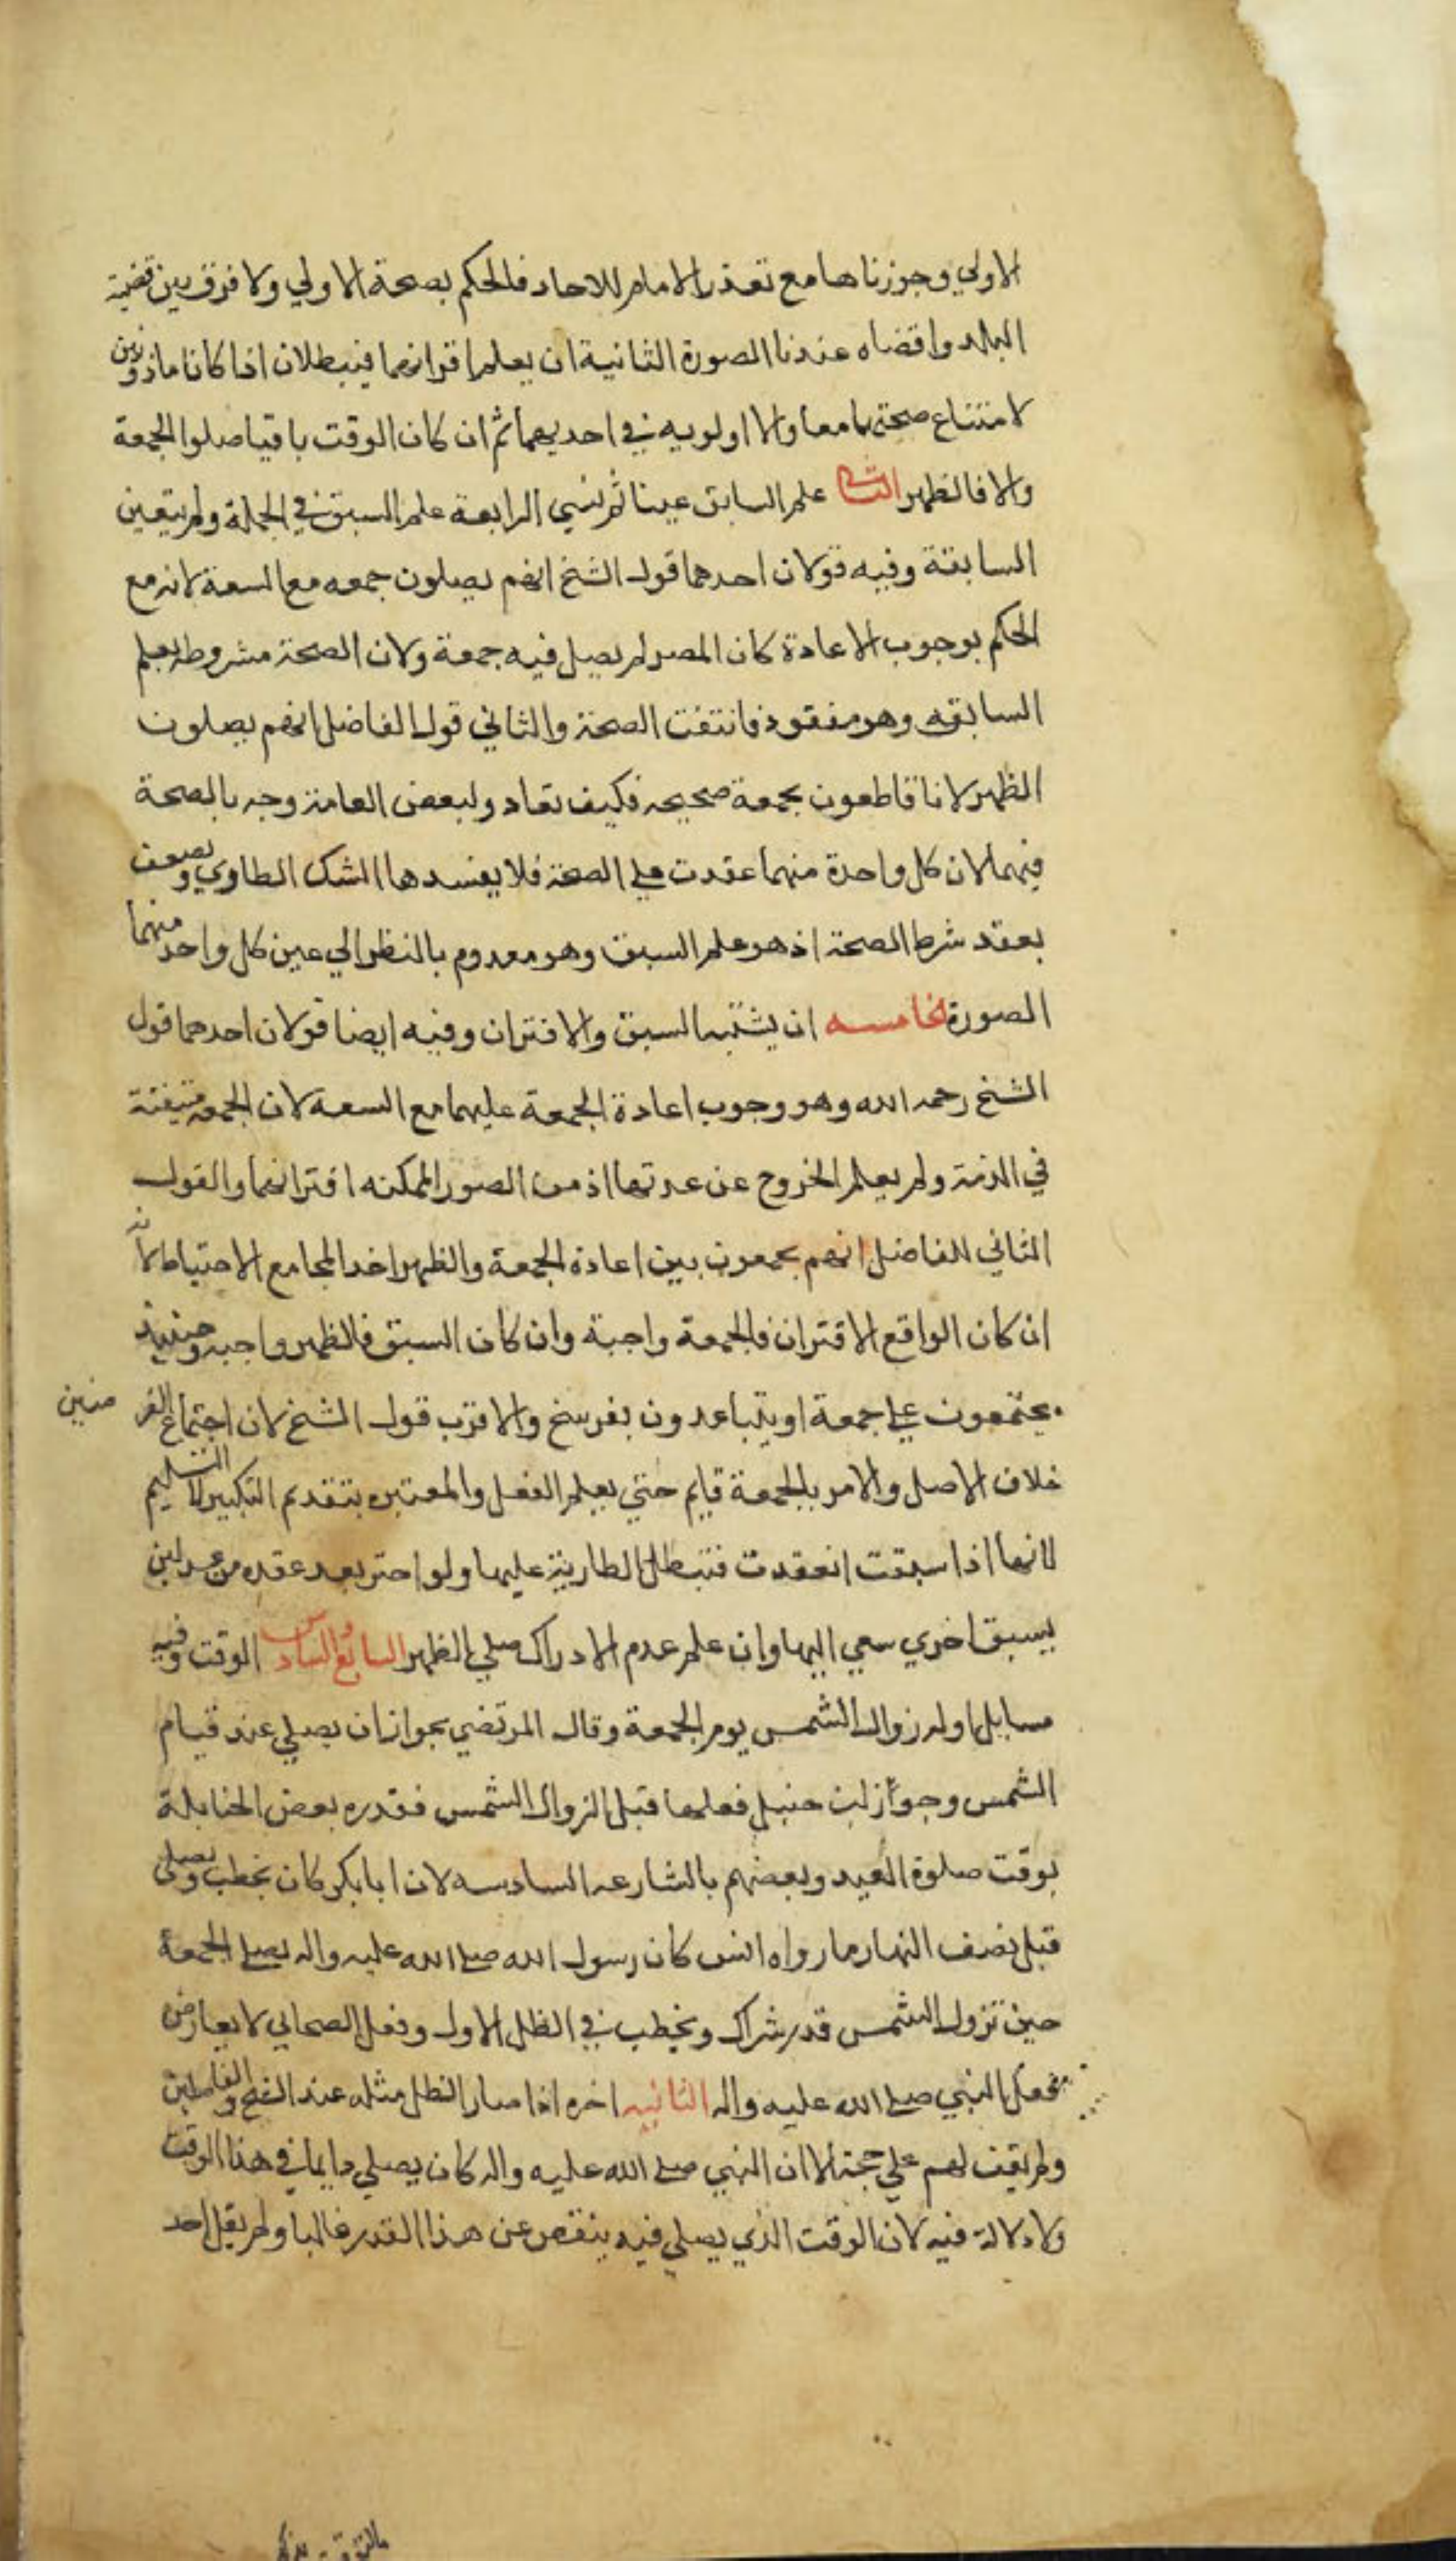 الاولي وجوزناها مع تعذر الامام للاحاد فالحكم بصحة الاولي ولا فرق بين قضية
البلد واقضاه عندنا الصورة الثانية ان يعلم اقترانهما فيبطلان اذا كانا ماذونين
لامتناع صحتهما معا ولا اولويه في احديهما ثم ان كان الوقت باقيا صلوا الجمعة
والا فالظهر علم السابق عينا ثم نسي الرابعة علم السبق في الجملة ولم يتعين
السابقة وفيه قولان احدهما قول الشيخ انهم يصلون جمعه مع السعة لانه مع
الحكم بوجوب الاعادة كان المصر لم يصل فيه جمعة ولان الصحة مشروطه بعلم
السابقه وهو مفقود فانتفت الصحة والثاني قول الفاضل انهم يصلون
الظهر لانا قاطعون بجمعة صحيحه فكيف تعاد ولبعض العامة وجه بالصحة
فيهما لان كل واحدة منهما عقدت علي الصحة فلا يفسدها الشك الطاري ويضعف
بفقد شرط الصحة اذ هو علم السبق وهو معدوم بالنظر الي عين كل واحد منهما
الصورة الخامسه ان يشتبه السبق والاقتران وفيه ايضا قولان احدهما قول
الشيخ رحمه الله وهو وجوب اعادة الجمعة عليهما مع السعة لان الجمعه متيقنة
في الذمة ولم يعلم الخروج عن عدتها اذ من الصور الممكنه اقترانهما والقول
الثاني للفاضل انهم يجمعون بين اعادة الجمعة والظهر اخذا بمجامع الاحتياط لانه
ان كان الواقع الاقتران فالجمعة واجبة وان كان السبق فالظهر واجبه وحينئذ
يجتمعون علي جمعة او يتباعدون بفرسخ والاقرب قول الشيخ لان اجتماع الفرضين
خلاف الاصل والامر بالجمعة قايم حتي يعلم الفعل والمعتبره بتقدم التكبير لا التسليم
لانها اذا سبقت انعقدت فتبطل الطارية عليها ولو اخبر بعد عقده من عدلين
بسبق اخري سعي اليها وان علم عدم الادراك صلي الظهر السابع السادس الوقت وفيه
مسايل اوله زوال الشمس يوم الجمعة وقال المرتضي بجواز ان يصلي عند قيام
الشمس وجواز لبن حنبل فعلها قبل الزوال الشمس فقدره بعض الحنابلة
بوقت صلوة العيد وبعضهم بالشارعه السادسه لان ابابكر كان يخطب ويصلي
قبل نصف النهار ما رواه انس كان رسول الله صلي الله عليه واله يصلي الجمعة
حين تزول الشمس قدر شراك ويخطب في الظل الاول وفعل الصحابي لا يعارض
فعل النبي صلي الله عليه واله الثانيه اخره اذا صار الظل مثله عند الشيخ والفاضلين
ولم يقف لهم علي حجة الا ان النبي صلي الله عليه واله كان يصلي دايما في هذا الوقت
ولا دلالة فيه لان الوقت الذي يصلي فيه ينقص عن هذا القدر غالبا ولم يقل احد